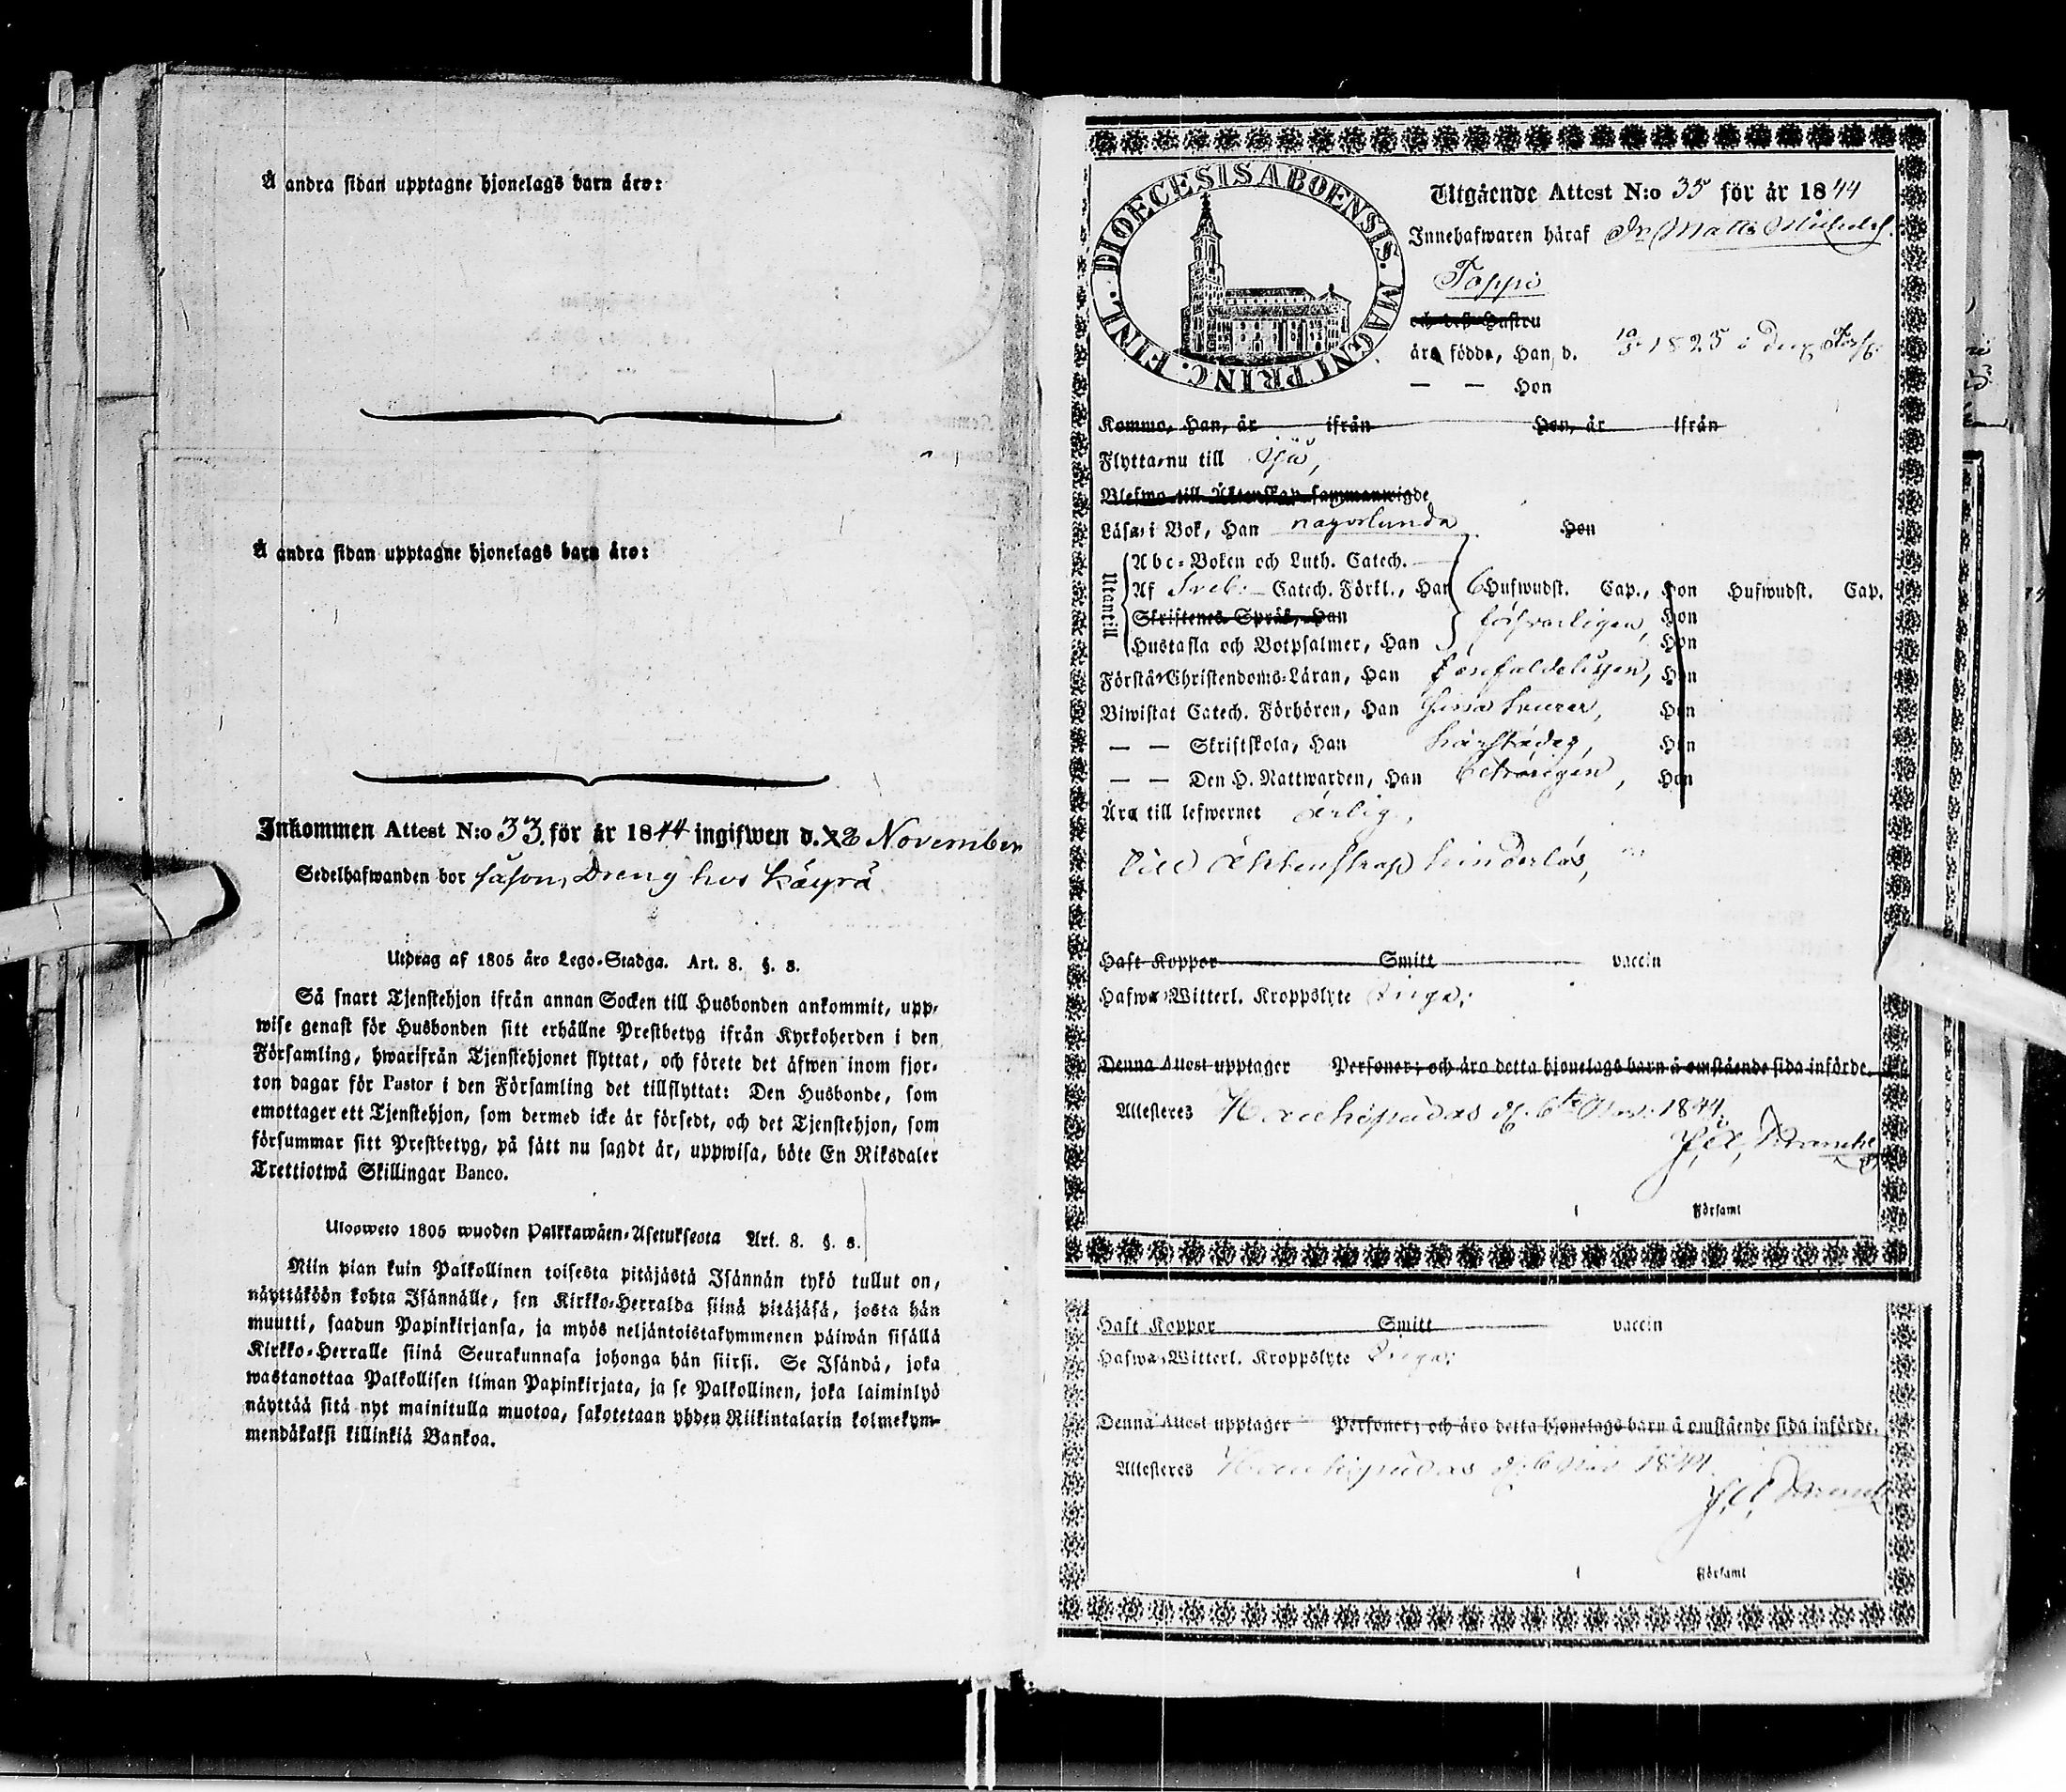 Å andra sidan upptagne hjonelags barn äro:
Å andra sidan upptagne hjonelags barn äro:
Inkommen Attest N:o 33 för år 1844 ingifwen d. 22 November
Sedelhafwanden bor såsom Dreng hos Käyrä
Utdrag af 1805 års Lego-Stadga. Art. 8. §. 3.
Så snart Tjenstehjon ifrån annan Socken till Husbonden ankommit, upp-
wise genast för Husbonden sitt erhållne Prestbetyg ifrån Kyrkoherden i den
Församling, hwarifrån Tjenstehjonet flyttat, och förete det äfwen inom fjor-
ton dagar för Pastor i den Församling det tillflyttat: Den Husbonde, som
emottager ett Tjenstehjon, som dermed icke är försedt, och det Tjenstehjon, som
försummar sitt Prestbetyg, på sätt nu sagdt är, uppwisa, böte En Riksdaler
Trettiotwå Skillingar Banco.
Ulosweto 1805 wuoden Palkkawäen-Asetuksesta Art. 8. §. 3.
Niin pian kuin Palkollinen toisesta pitäjästä Isännän tykö tullut on,
näyttäköön kohta Isännälle, sen Kirkko-Herralda siinä pitäjäsä, josta hän
muutti, saadun Papinkirjansa, ja myös neljäntoistakymmenen päiwän sisällä
Kirkko-Herralle siinä Seurakunnasa johonga hän siirsi. Se Isändä, joka
wastanottaa Palkollisen ilman Papinkirjata, ja se Palkollinen, joka laiminlyö
näyttää sitä nyt mainitulla muotoa, sakotetaan yhden Riikintalarin kolmekym-
mendäkaksi killinkiä Bankoa.
DIOECESIS ABOENSIS. MAGNI PRINC. FINL.
Utgående Attest N:o 35 för år 1844
Innehafwaren häraf Dr. Matts Michelss.
Toppi
och dess Hustru
äro födde, Han, d. 10/3 1825 i
— — Hon
Kommo, Han, år ifrån Hon, år ifrån
Flytta nu till Ijo,
Blefwo till Äktenskap sammanwigde
Läsa i Bok, Han någorlunda Hon
Utantill
Abc-Boken och Luth. Catech.
Af Sveb. Catech. Förkl., Han 6 Hufwudst. Cap., Hon Hufwudst. Cap.
Skriftenes Språk, Han Hon
Hustafla och Botpsalmer, Han försvarligen, Hon
Förstå Christendoms-Läran, Han enfaldeligen, Hon
Biwistat Catech. Förhören, Han Hon
— — Skriftskola, Han Hon
— — Den H. Nattwarden, Han Hon
Äro till lefwernet ärlig,
till äktenskap hinderlös,
Haft Koppor Smitt vaccin
Hafwa Witterl. Kroppslyte Inga;
Denna Attest upptager Personer; och äro detta hjonelags barn å omstående sida införde.
Attesteres Haukipudas d. 6te Nov. 1844.
i Församl
Haft Koppor Smitt vaccin
Hafwa Witterl. Kroppslyte Inga;
Denna Attest upptager Personer; och äro detta hjonelags barn å omstående sida införde.
Attesteres Haukipudas d. 6 Nov 1844.
i Församl